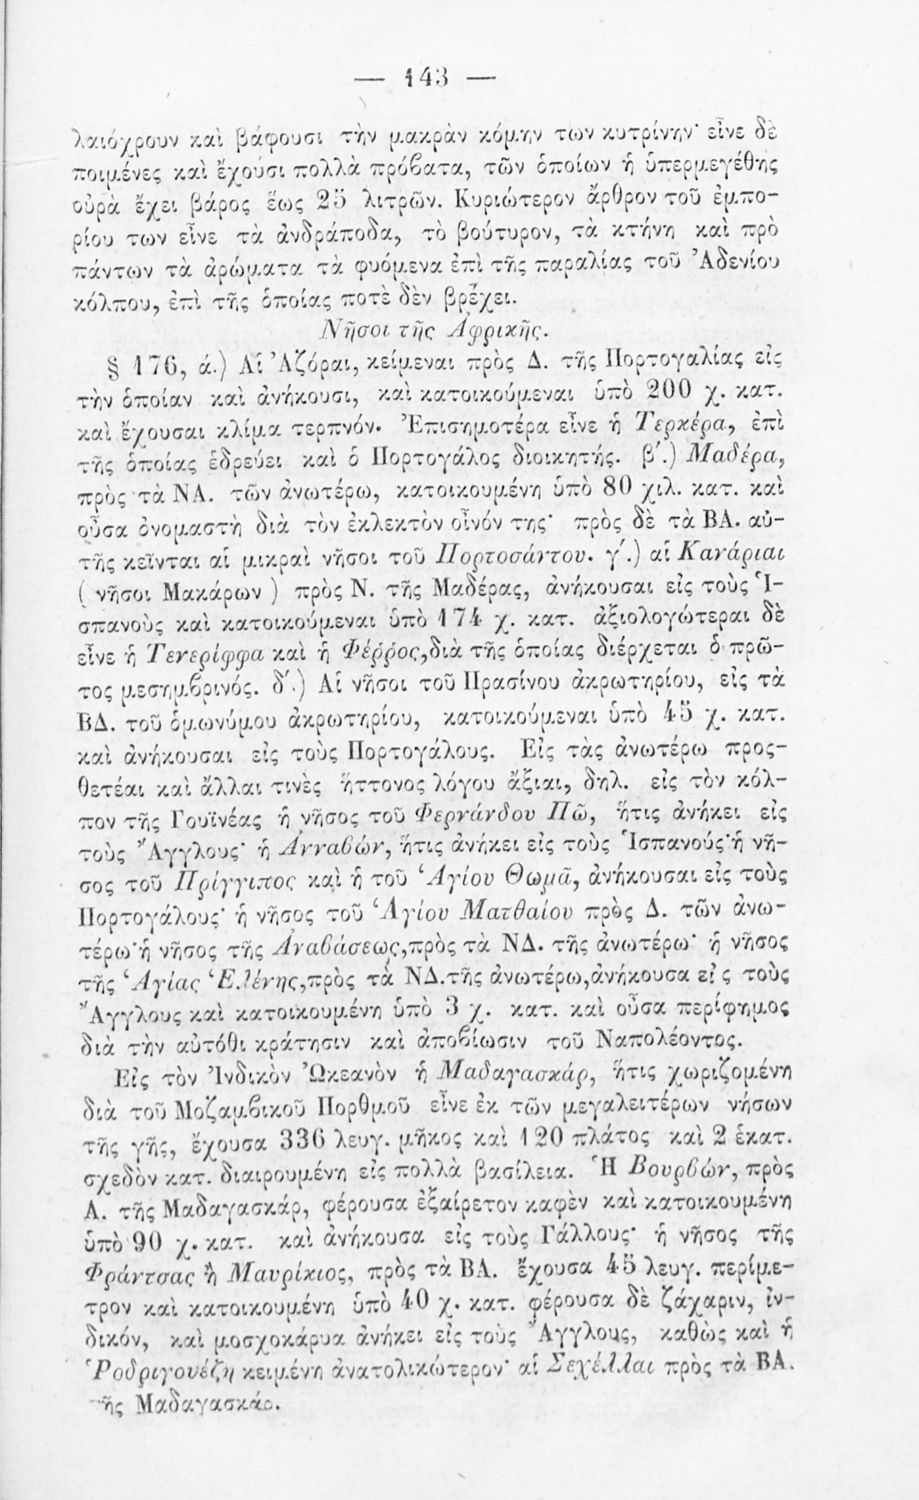 — 143 —
λαιόχρουν καὶ βάφουσι τὴν μακρὰν κόμην των κυτρίνην· εἶνε δὲ
ποιμένες καὶ ἔχουσι πολλὰ πρόβατα, τῶν ὁποίων ἡ ὑπερμεγέθης
οὐρὰ ἔχει βάρος ἕως 25 λιτρῶν. Κυριώτερον ἄρθρον τοῦ ἐμπο-
ρίου των εἶνε τὰ ἀνδράποδα, τὸ βούτυρον, τὰ κτήνη καὶ πρὸ
πάντων τὰ ἀρώματα τὰ φυόμενα ἐπὶ τῆς παραλίας τοῦ Ἀδενίου
κόλπου, ἐπὶ τῆς ὁποίας ποτὲ δὲν βρέχει.
Νῆσοι τῆς Ἀφρικῆς.
§ 176, ά.) Αἱ Ἀζόραι, κείμεναι πρὸς Δ. τῆς Πορτογαλίας εἰς
τὴν ὁποίαν καὶ ἀνήκουσι, καὶ κατοικούμεναι ὑπὸ 200 χ. κατ.
καὶ ἔχουσαι κλίμα τερπνόν. Ἐπισημοτέρα εἶνε ἡ Τερκέρα, ἐπὶ
τῆς ὁποίας ἑδρεύει καὶ ὁ Πορτογάλος διοικητής. β΄.) Μαδέρα,
πρὸς τὰ ΝΑ. τῶν ἀνωτέρω, κατοικουμένη ὑπὸ 80 χιλ. κατ. καὶ
οὖσα ὀνομαστὴ διὰ τὸν ἐκλεκτὸν οἶνόν της· πρὸς δὲ τὰ ΒΑ. αὐ-
τῆς κεῖνται αἱ μικραὶ νῆσοι τοῦ Πορτοσάντου. γ΄.) αἱ Κανάριαι
( νῆσοι Μακάρων ) πρὸς Ν. τῆς Μαδέρας, ἀνήκουσαι εἰς τοὺς Ἱ-
σπανοὺς καὶ κατοικούμεναι ὑπὸ 174 χ. κατ. ἀξιολογώτεραι δὲ
εἶνε ἡ Τενερίφφα καὶ ἡ Φέῤῥος, διὰ τῆς ὁποίας διέρχεται ὁ πρῶ-
τος μεσημβρινός. δ΄.) Αἱ νῆσοι τοῦ Πρασίνου ἀκρωτηρίου, εἰς τὰ
ΒΔ. τοῦ ὁμωνύμου ἀκρωτηρίου, κατοικούμεναι ὑπὸ 45 χ. κατ.
καὶ ἀνήκουσαι εἰς τοὺς Πορτογάλους. Εἰς τὰς ἀνωτέρω προς-
θετέαι καὶ ἄλλαι τινὲς ἥττονος λόγου ἄξιαι, δηλ. εἰς τὸν κόλ-
πον τῆς Γουϊνέας ἡ νῆσος τοῦ Φερνάνδου Πῶ, ἥτις ἀνήκει εἰς
τοὺς Ἄγγλους· ἡ Ἀνναβών, ἥτις ἀνήκει εἰς τοὺς Ἱσπανούς· ἡ νῆ-
σος τοῦ Πρίγγιπος καὶ ἡ τοῦ Ἁγίου Θωμᾶ, ἀνήκουσαι εἰς τοὺς
Πορτογάλους· ἡ νῆσος τοῦ Ἁγίου Ματθαίου πρὸς Δ. τῶν ἀνω-
τέρω· ἡ νῆσος τῆς Ἀναβάσεως, πρὸς τὰ ΝΔ. τῆς ἀνωτέρω· ἡ νῆσος
τῆς Ἁγίας Ἑλένης, πρὸς τὰ ΝΔ. τῆς ἀνωτέρω, ἀνήκουσα εἰς τοὺς
Ἄγγλους καὶ κατοικουμένη ὑπὸ 3 χ. κατ. καὶ οὖσα περίφημος
διὰ τὴν αὐτόθι κράτησιν καὶ ἀποβίωσιν τοῦ Ναπολέοντος.
Εἰς τὸν Ἰνδικὸν Ὠκεανὸν ἡ Μαδαγασκάρ, ἥτις χωριζομένη
διὰ τοῦ Μοζαμβικοῦ Πορθμοῦ εἶνε ἐκ τῶν μεγαλειτέρων νήσων
τῆς γῆς, ἔχουσα 336 λευγ. μῆκος καὶ 120 πλάτος καὶ 2 ἑκατ.
σχεδὸν κατ. διαιρουμένη εἰς πολλὰ βασίλεια. Ἡ Βουρβών, πρὸς
Α. τῆς Μαδαγασκάρ, φέρουσα ἐξαίρετον καφὲν καὶ κατοικουμένη
ὑπὸ 90 χ. κατ. καὶ ἀνήκουσα εἰς τοὺς Γάλλους· ἡ νῆσος τῆς
Φράντσας ἢ Μαυρίκιος, πρὸς τὰ ΒΑ. ἔχουσα 45 λευγ. περίμε-
τρον καὶ κατοικουμένη ὑπὸ 40 χ. κατ. φέρουσα δὲ ζάχαριν, ἰν-
δικόν, καὶ μοσχοκάρυα ἀνήκει εἰς τοὺς Ἄγγλους, καθὼς καὶ ἡ
Ῥοδριγουέζη κειμένη ἀνατολικώτερον· αἱ Σεχέλλαι πρὸς τὰ ΒΑ.
τῆς Μαδαγασκάρ.